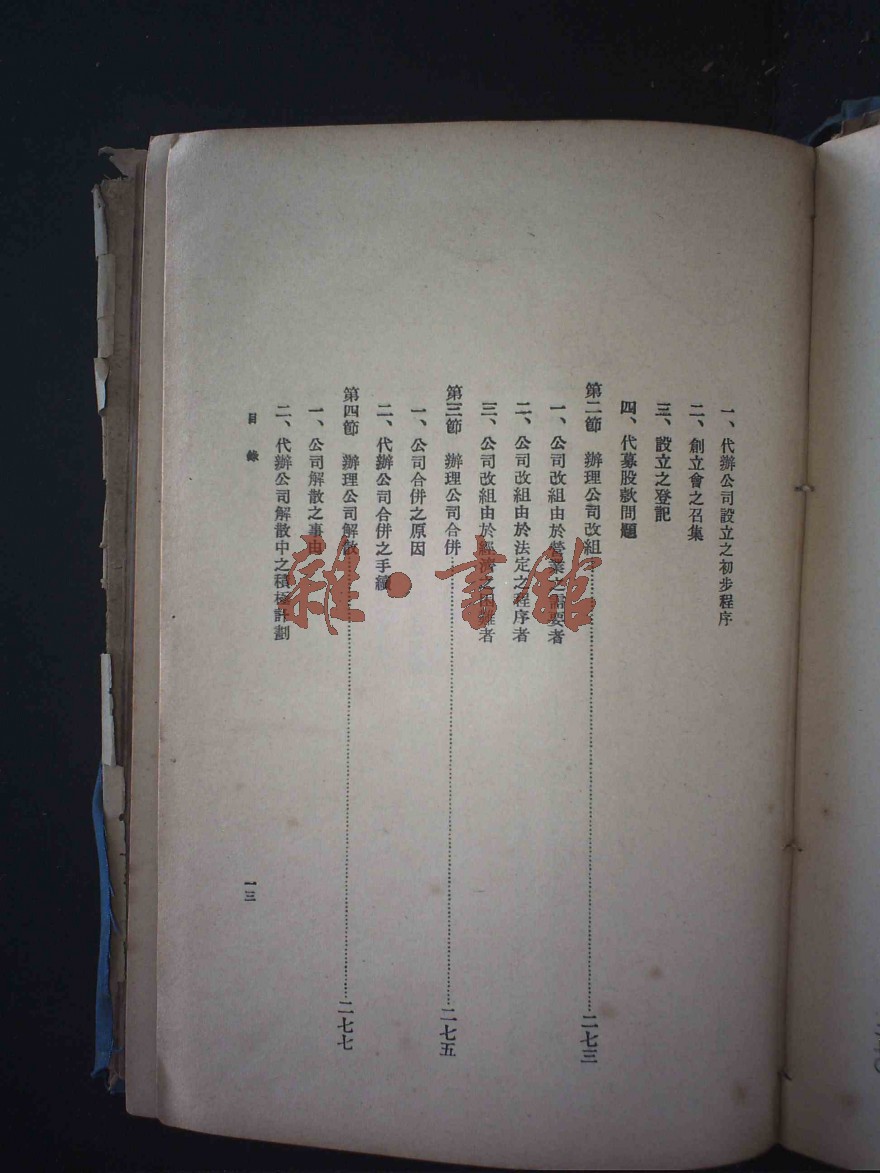 一、代辦公司設立之初步程序
二、創立會之召集
三、設立之登記
四、代募股款問題
第二節　辦理公司改組……二七三
一、公司改組由於營業之需要者
二、公司改組由於法定之程序者
三、公司改組由於經濟之困難者
第三節　辦理公司合併……二七五
一、公司合併之原因
二、代辦公司合併之手續
第四節　辦理公司解散……二七七
一、公司解散之事由
二、代辦公司解散中之積極計劃
目錄　一三
雜·書館